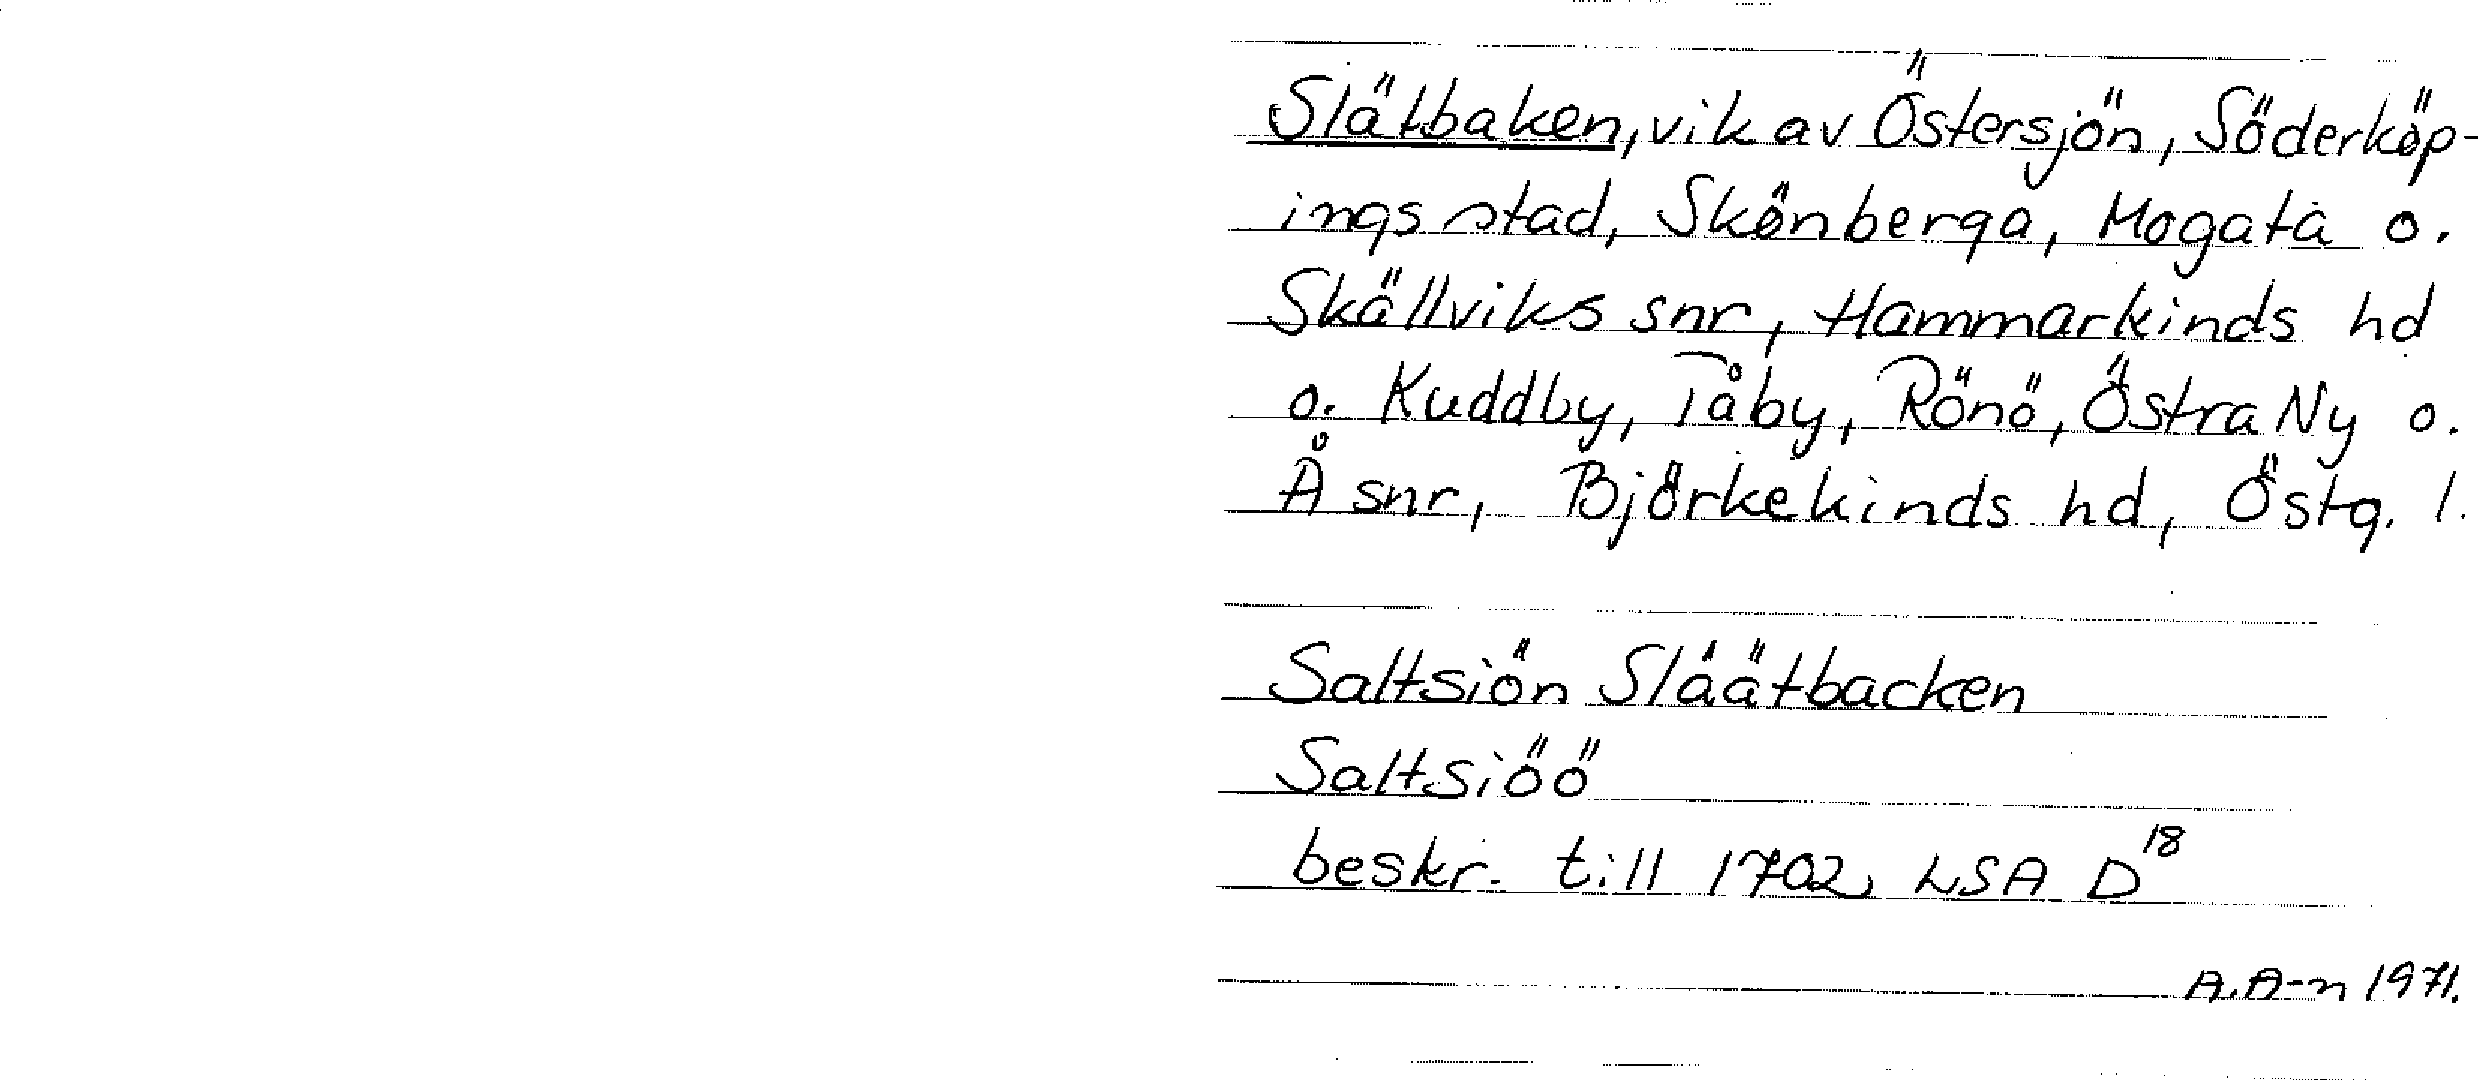 Slätbaken, vik av Östersjön, Söderköp-
ings stad, Skönberga, Mogata o.
Skällviks snr, Hammarkinds hd
o. Kuddby, Tåby, Rönö, Östra Ny o.
Å snr, Björkekinds hd, Östg. l.
Saltsiön Släätbacken
Saltsiöö
beskr. till 1702, LSA D18
A.A-n 1971.